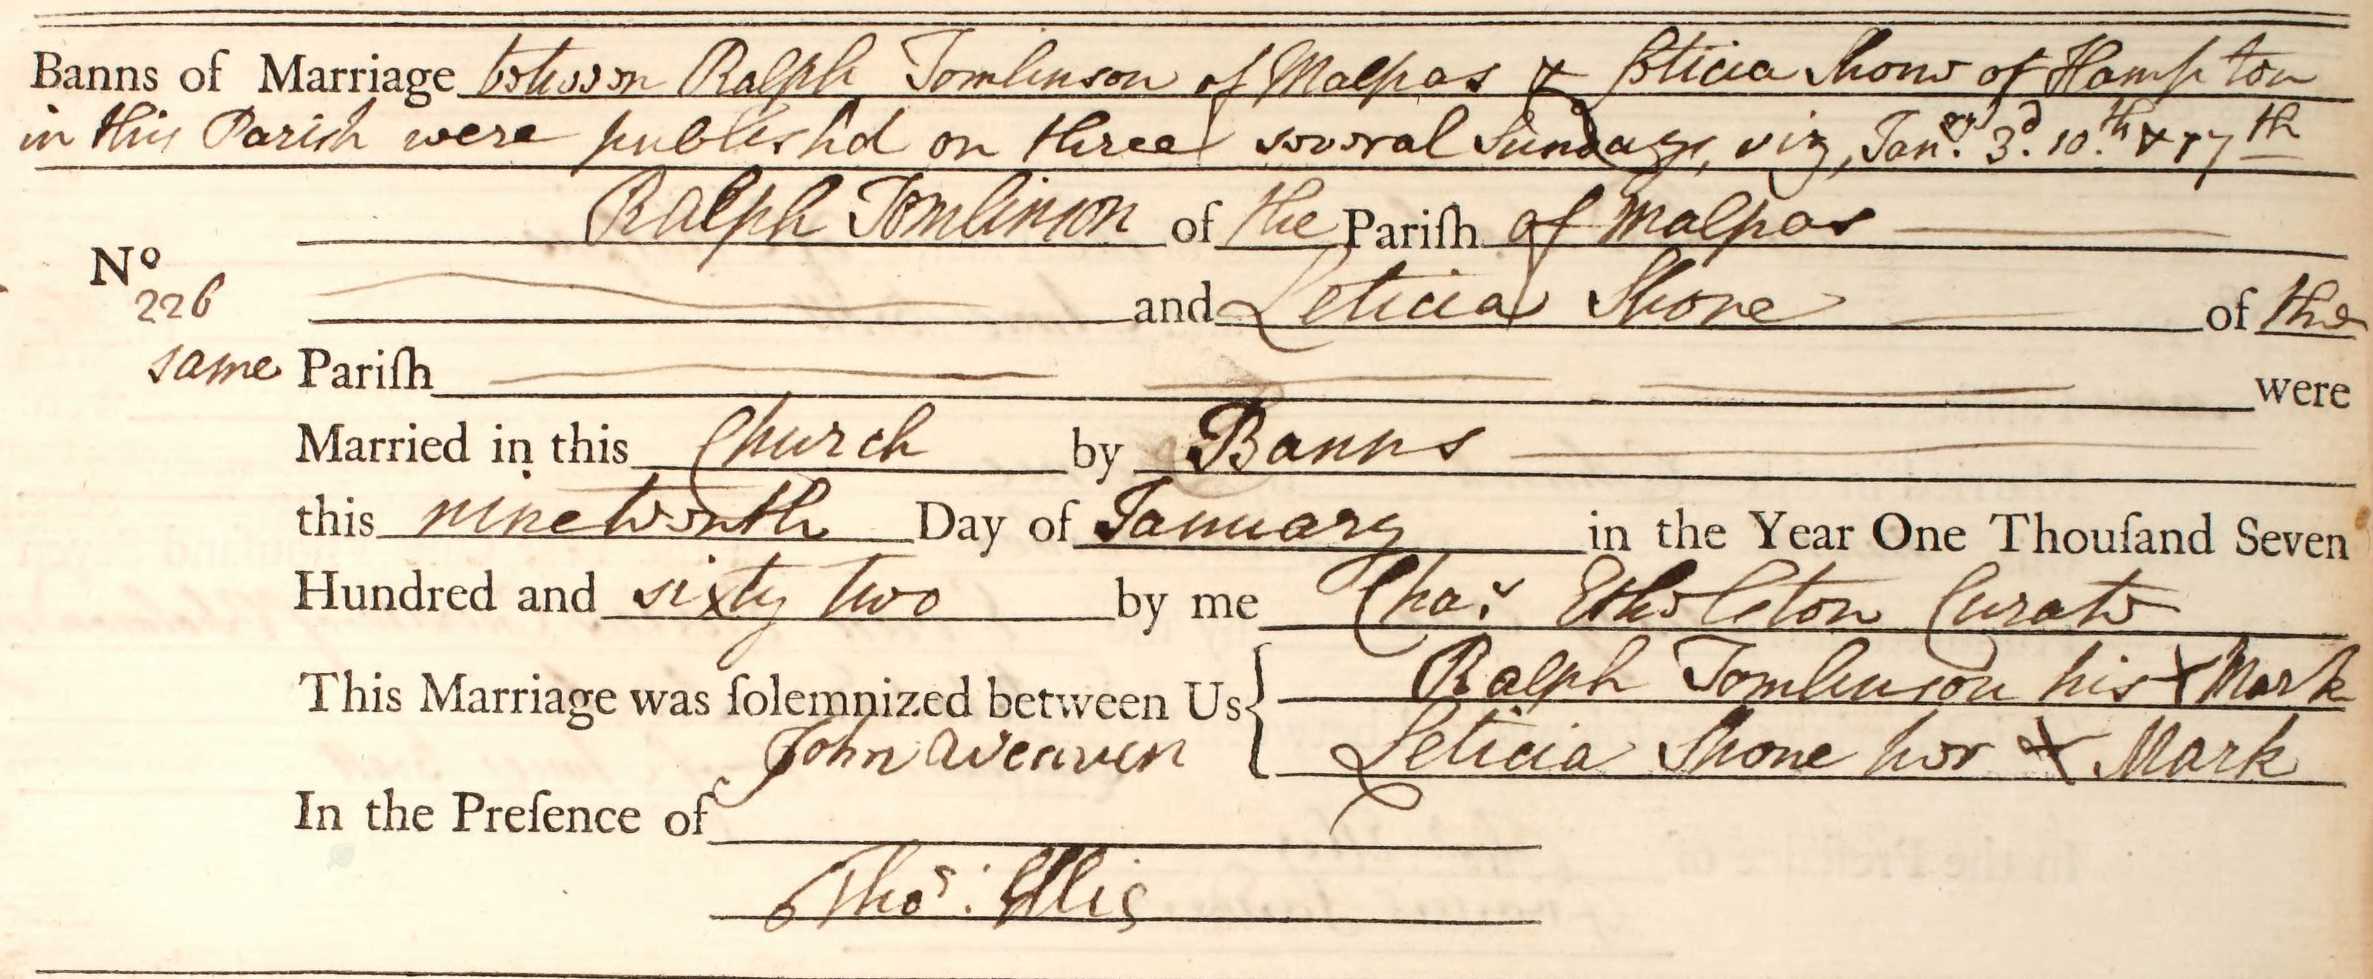 Banns of Marriage between Ralph Tomlinson of Malpas & Leticia Shone of Hampton
in this Parish were publish'd on three several Sundays, viz, Janry. 3d. 10th. & 17th
Ralph Tomlinson of the Pariſh of Malpas
No
226
and Leticia Shone of the
same Pariſh were
Married in this Church by Banns
this nineteenth Day of January in the Year One Thouſand Seven
Hundred and sixty two by me Chas. Etheleton Curate
This Marriage was ſolemnized between Us { Ralph Tomlinson his X Mark
Leticia Shone her X Mark
John Weaver
In the Preſence of
Thos: Ellis